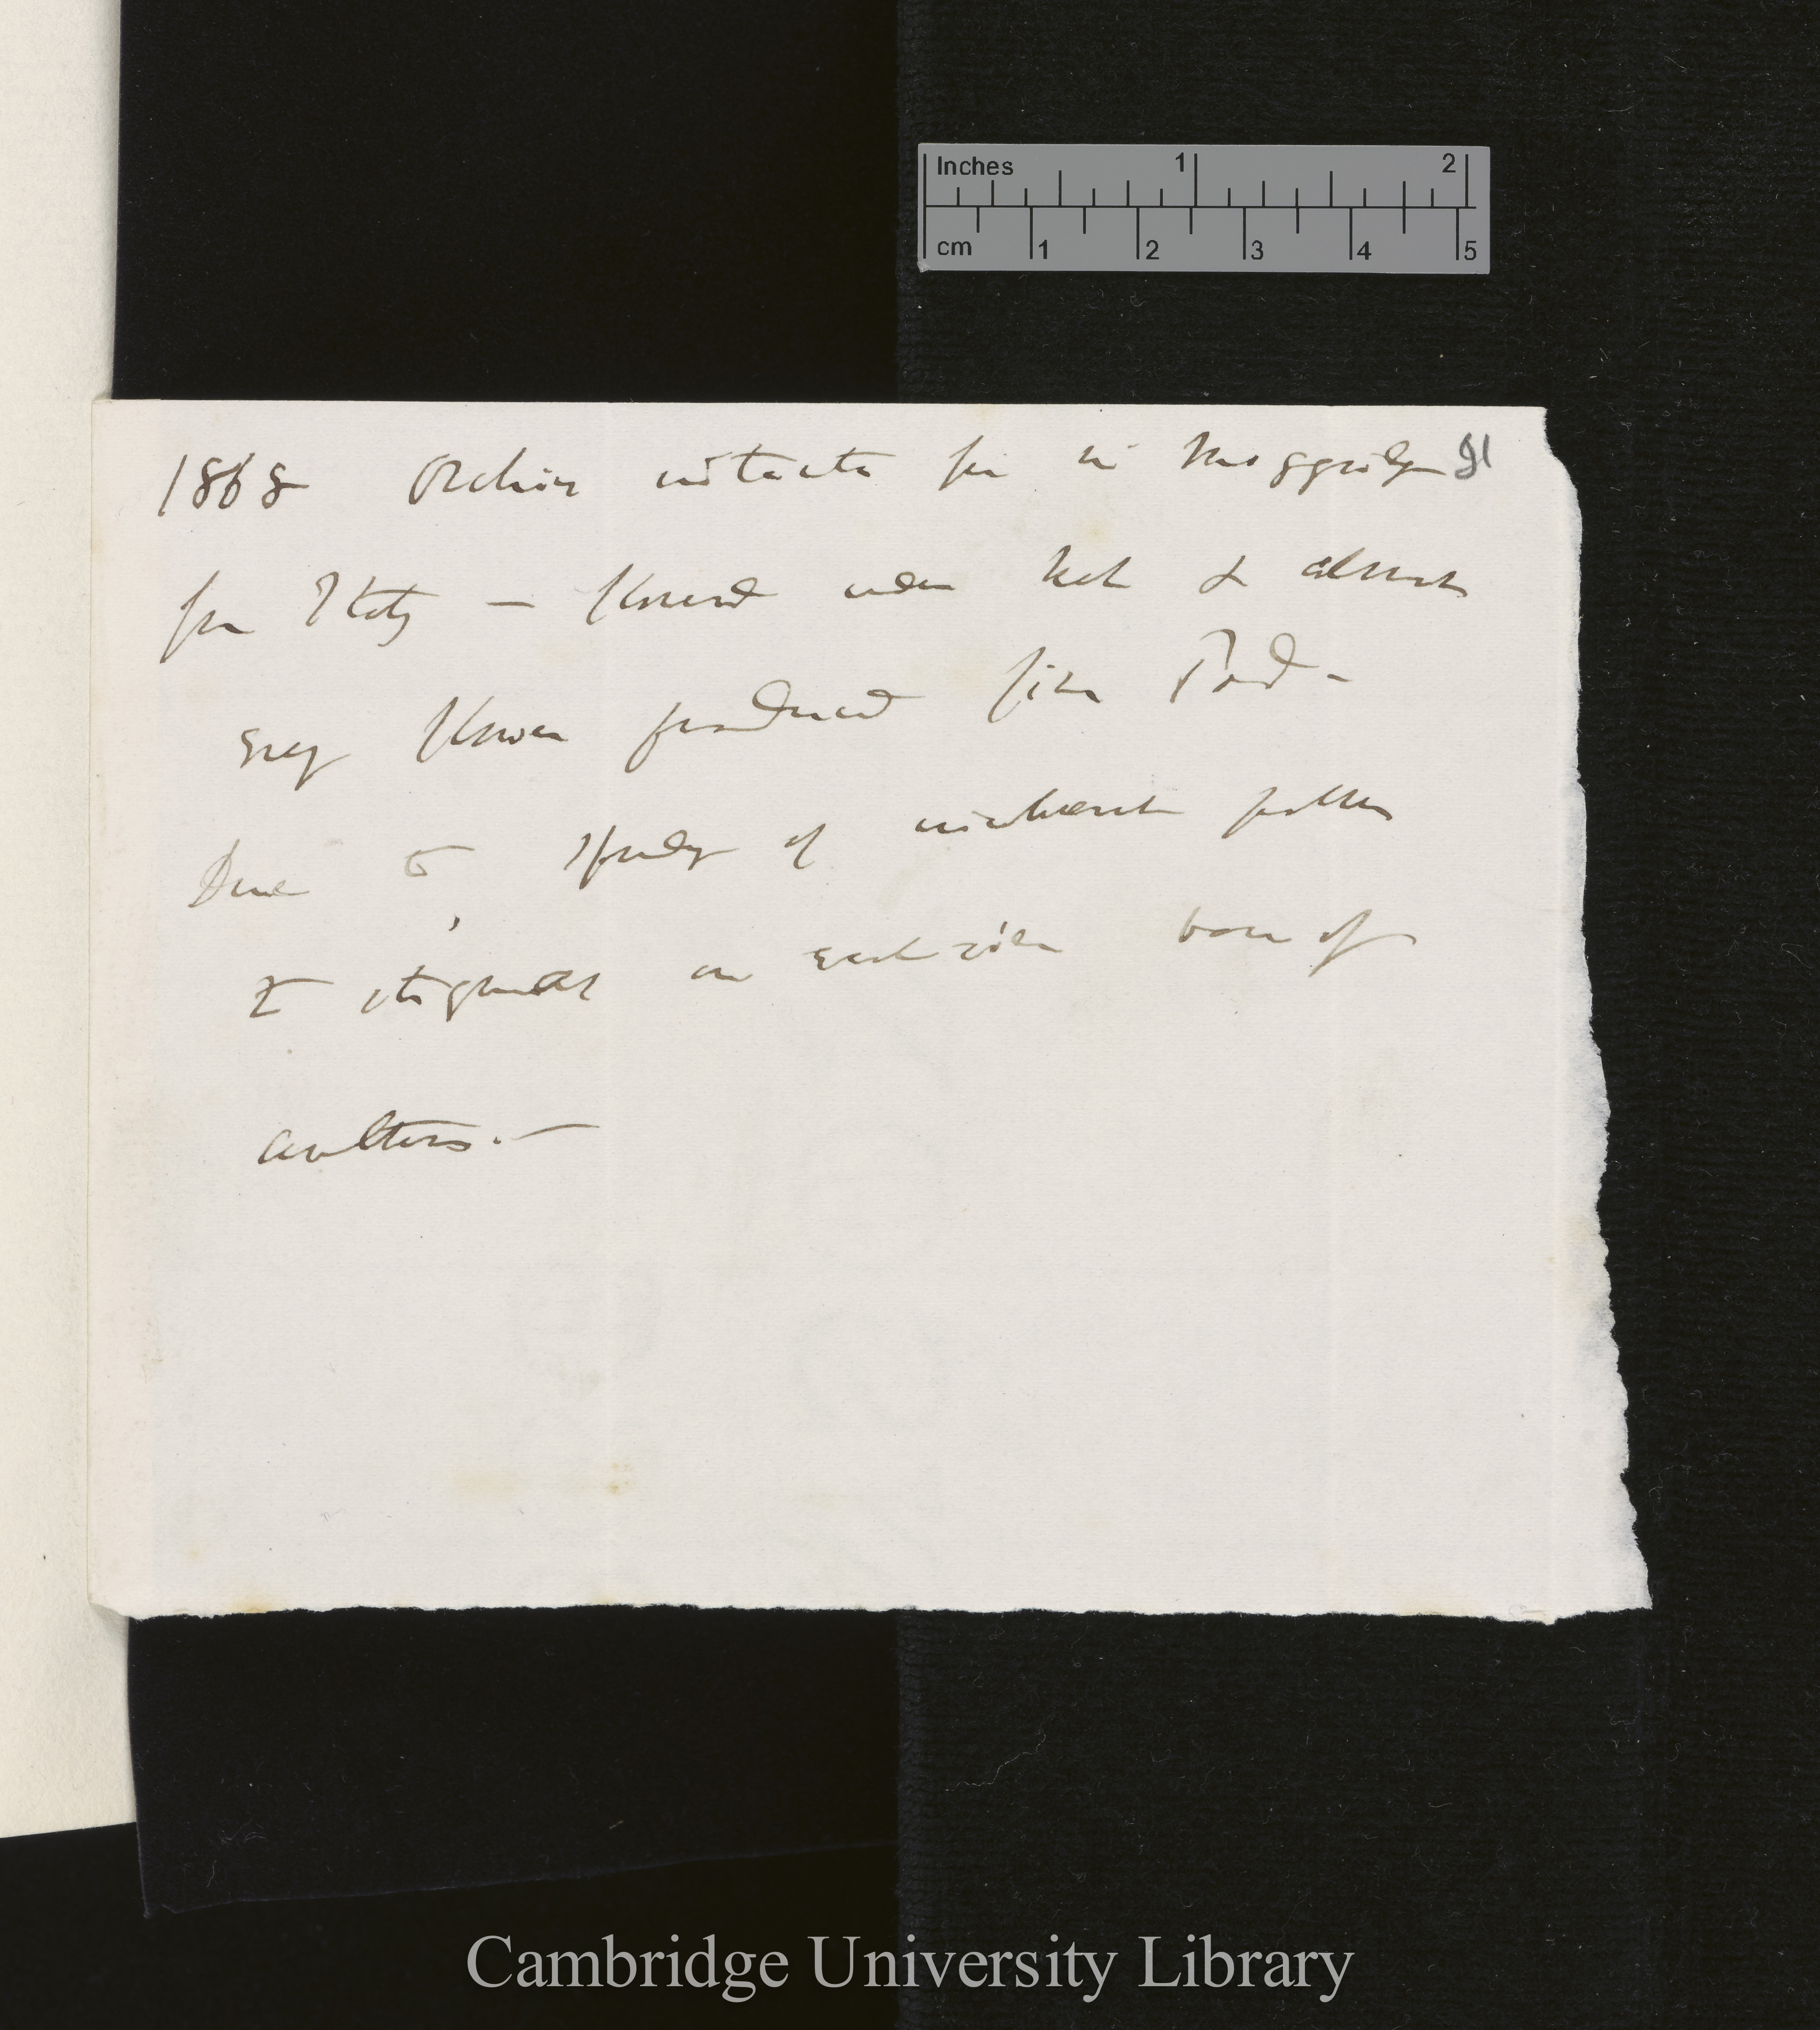 Inches 1 2
cm 1 2 3 4 5
1868 Orchis intacta fr Mr Moggridge 91
from Italy — flowered under net & almost
every flower produced fine Pod —
Due to of incoherent pollen
to stigmas on each side base of
anthers. —
Cambridge University Library